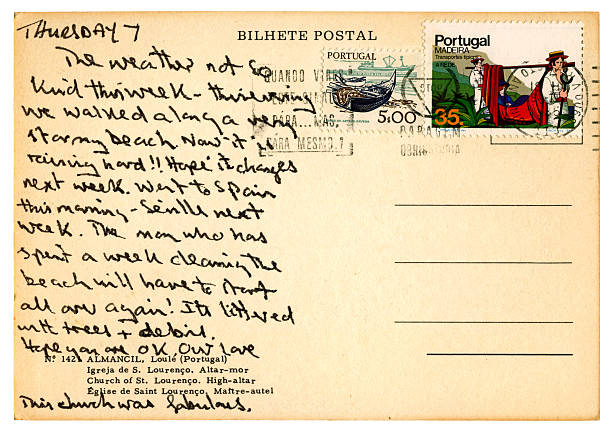 THURSDAY 7
BILHETE POSTAL
The weather not so
kind this week - this evening
we walked along a very
stormy beach. Now it's
raining hard!! Hope it changes
next week. Went to Spain
this morning - Seville next
week. The man who has
spent a week cleaning the
beach will have to start
all over again! Its littered
with trees + debris.
Hope you are OK. Our Love
PORTUGAL
5$00
Portugal
MADEIRA
Transportes típicos
A REDE
35.
QUANDO VIRES
ESTE SINAL
PARA... MAS,
PARA MESMO!
PARAGEM
OBRIGATÓRIA
N.º 142 ALMANCIL, Loulé (Portugal)
Igreja de S. Lourenço. Altar-mor
Church of St. Lourenço. High-altar
Église de Saint Lourenço. Maître-autel
This church was fabulous.